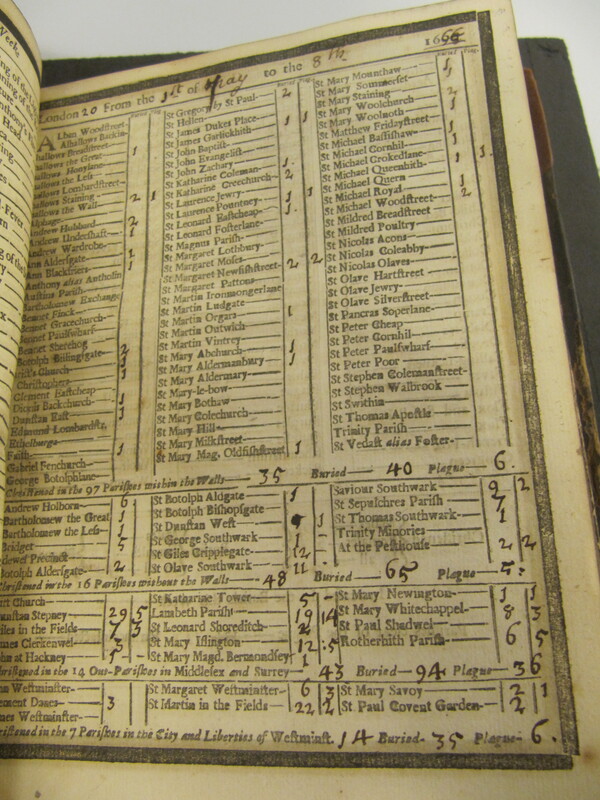 London 20 From the 1st of May to the 8th 1666
Alban Woodstreet
Alhallows Barkin
Breadstreet 1
Great
Honylane
Less
Lombardstreet
Staining 2 1
the Wall
Alphage
Andrew Hubbard 2
Andrew Undershaft 1
Andrew Wardrobe
Ann Aldersgate 1
Ann Blackfriers 1
Anthony alias Antholin
Austins Parish
Bartholomew Exchange
Bennet Finck
Bennet Gracechurch
Bennet Paulswharf
Bennet Sherehog
Botolph Billingsgate
Christ's Church
Christophers
Clement Eastcheap
Dionis Backchurch
Dunstan East
Edmund Lombardstr.
Ethelburga
Faith 1
Gabriel Fenchurch
George Botolphlane
St Gregory by St Paul 2
St Hellen
St James Dukes Place 1 1
St James Garlickhith
St John Baptist
St John Evangelist
St John Zachary 1
St Katharine Coleman 2
St Katharine Creechurch 2
St Laurence Jewry 1 1
St Laurence Pountney 1
St Leonard Eastcheap
St Leonard Fosterlane
St Magnus Parish
St Margaret Lothbury
St Margaret Moses 2 2
St Margaret Newfishstreet
St Margaret Pattons
St Martin Ironmongerlane
St Martin Ludgate
St Martin Orgars 1
St Martin Outwich
St Martin Vintrey
St Mary Abchurch 1
St Mary Aldermanbury 1
St Mary Aldermary
St Mary-le-bow
St Mary Bothaw
St Mary Colechurch
St Mary Hill
St Mary Milkstreet
St Mary Mag. Oldfishstreet 1
St Mary Mounthaw
St Mary Sommerset
St Mary Staining
St Mary Woolchurch
St Mary Woolnoth
St Matthew Fridaystreet
St Michael Bassishaw
St Michael Cornhil
St Michael Crokedlane
St Michael Queenhith
St Michael Quern
St Michael Royal
St Michael Woodstreet
St Mildred Breadstreet
St Mildred Poultry
St Nicolas Acons
St Nicolas Coleabby
St Nicolas Olaves
St Olave Hartstreet
St Olave Jewry
St Olave Silverstreet
St Pancras Soperlane
St Peter Cheap
St Peter Cornhil
St Peter Paulswharf
St Peter Poor
St Stephen Colemanstreet
St Stephen Walbrook
St Swithin
St Thomas Apostle
Trinity Parish
St Vedast alias Foster
Christened in the 97 Parishes within the Walls 35 Buried 40 Plague 6.
Andrew Holborn 6
Bartholomew the Great 1
Bartholomew the Less 1
Bridget 5
Precinct
Botolph Aldersgate 2
St Botolph Aldgate 1
St Botolph Bishopsgate
St Dunstan West 1
St George Southwark 1
St Giles Cripplegate 12
St Olave Southwark 11
Saviour Southwark 9 2
St Sepulchres Parish 7
St Thomas Southwark 1
Trinity Minories
At the Pesthouse 2 2
Christened in the 16 Parishes without the Walls 48 Buried 65 Plague
Church
Dunstan Stepney 29 5
Giles in the Fields 7 3
James Clerkenwel 3
John at Hackney 1
St Katharine Tower 5
Lambeth Parish 19 14
St Leonard Shoreditch 2
St Mary Islington 12 5
St Mary Magd. Bermondsey 1
St Mary Newington 1 1
St Mary Whitechappel 8 3
St Paul Shadwel
Rotherhith Parish 6 5
Christened in the 14 Out-Parishes in Middlesex and Surrey 43 Buried 94 Plague 36
Westminster
Clement Danes 3
James Westminster
St Margaret Westminster 6 3
St Martin in the Fields 22 2
St Mary Savoy 2 1
St Paul Covent Garden 2
Christened in the 7 Parishes in the City and Liberties of Westminst. 14 Buried 35 Plague 6.